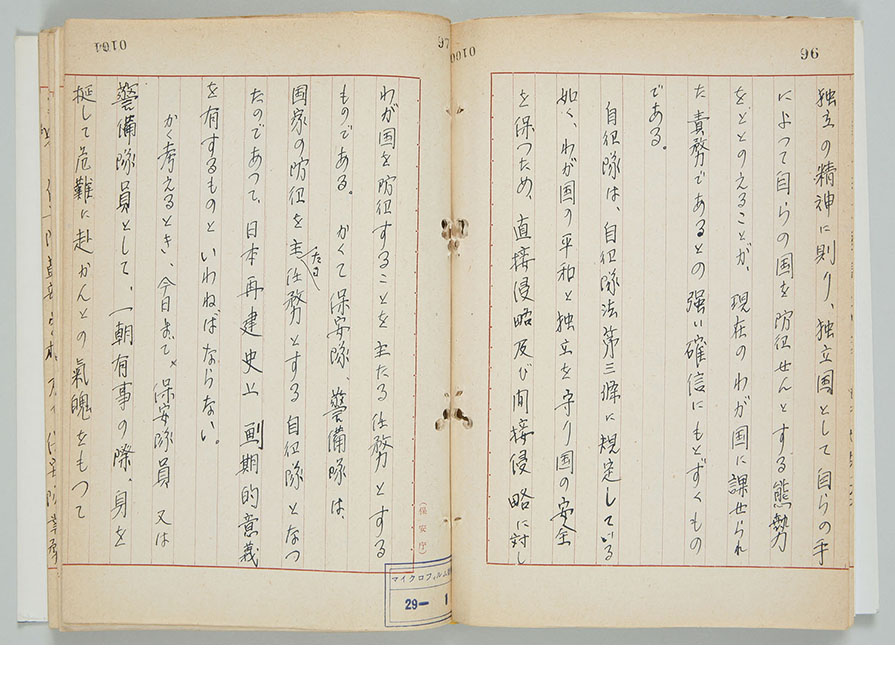 96
独立の精神に則り、独立国として自らの手
によって自らの国を防衛せんとする態勢
をとゝのえることが、現在のわが国に課せられ
た責務であるとの強い確信にもとずくもの
である。
自衛隊は、自衛隊法第三條に規定している
如く、わが国の平和と独立を守り国の安全
を保つため、直接侵略及び間接侵略に対し
0100
97
(保安庁)
わが国を防衛することを主たる任務とする
ものである。かくて保安隊、警備隊は、
国家の防衛を主たる任務とする自衛隊となつ
たのであつて、日本再建史上画期的意義
を有するものといわねばならない。
かく考えるとき、今日まで保安隊員又は
警備隊員として、一朝有事の際、身を
挺して危難に赴かんとの氣魄をもつて
0101
マイクロフィルム
29― 1